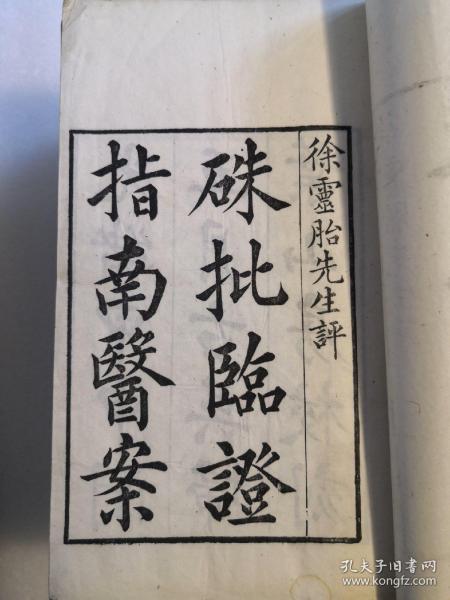 徐靈胎先生評
硃批臨證
指南醫案
孔夫子旧书网
www.kongfz.com